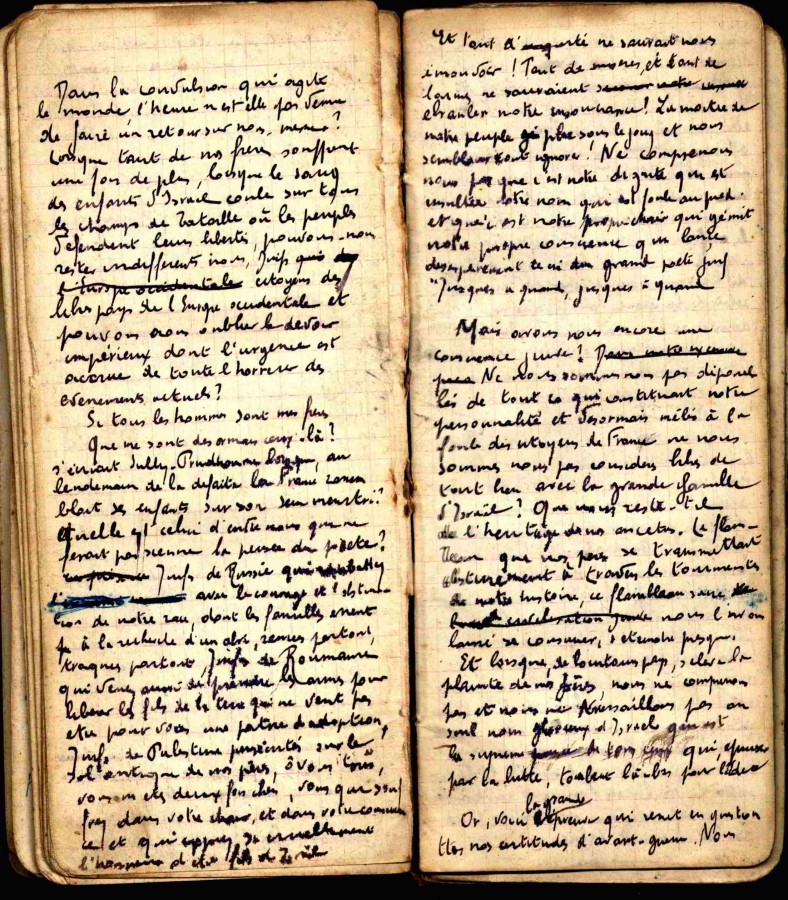 Dans la convulsion qui agite
le monde l'heure n'est elle pas venue
de faire un retour sur nos-memes?
Lorsque tant de nos freres souffrent
une fois de plus, lorsque le sang
des enfants d'Israel coule sur tous
les champs de bataille où les peuples
defendent leurs libertés, pouvons-nous
rester indifferents nous, Juifs qui de
l'Europe occidentale citoyens des
libres pays de l'Europe occidentale et
pouvons nous oublier le devoir
impérieux dont l'urgence est
accrue de toute l'horreur des
evenements actuels?
Si tous les hommes sont mes freres
Que me sont desormais ceux-là?
s'ecriait Sully-Prudhomme lorsque, au
lendemain de la defaite la France rassem
blait ses enfants sur son sein meurtri?
Quelle est celui d'entre nous qui ne
ferait pas sienne la pensee du poete?
Juifs de Russie qui
avec le courage et l'obstina-
tion de notre race, dont les familles errent
à la recherche d'un abri, reniés partout,
traqués partout, Juifs de Roumanie
qui venez aussi de prendre les armes pour
liberer les fils de la terre qui ne veut pas
etre pour vous une patrie d'adoption,
Juifs de Palestine persécutés sur le
sol antique de nos pères, ô vous tous,
vous m'etes deux fois chers, vous que souf
frez dans votre chair, et dans votre conscien
ce et qui expiez si cruellement
l'honneur d'etre fils d'Israël
Et tant d' ne saurait nous
émouvoir! Tant de miseres, et tant de
larmes ne sauraient
ebranler notre insouciance! La moitié de
notre peuple plie sous le joug et nous
semblons tout ignorer. Ne comprenons
nous pas que c'est notre dignité qui est
insultée notre nom qui est foulé au pied.
et que c'est notre qui gémit
notre propre conscience qui lance
desesperement le cri du grand poete juif
"Jusques a quand, jusques à quand
Mais avons nous encore une
conscience juive? Dans notre
Ne nous sommes nous pas dépouil
lés de tout ce qui constituait notre
personnalité et désormais mêlés à la
foule des citoyens de France ne nous
sommes nous pas considérés libres de
tout lien avec la grande famille
d'Israël? Que nous reste-t-il
de l'heritage de nos ancetres. Le flam-
beau que nos peres se transmettaient
obscurement à travers les tourmentes
de notre histoire, ce flambeau sans
nous l'avons
laissé se consumer, s'eteindre presque.
Et lorsque, de lointains pays, s'eleve la
plainte de nos frères, nous ne comprenons
pas et nous ne tressaillons pas au
seul nom glorieux d'Israel qui est
le supreme de tous ceux qui epuisés
par la lutte, tombent là-bas pour l'idéal
Or, voici la grande épreuve qui remet en question
ttes nos certitudes d'avant-guerre. Nous